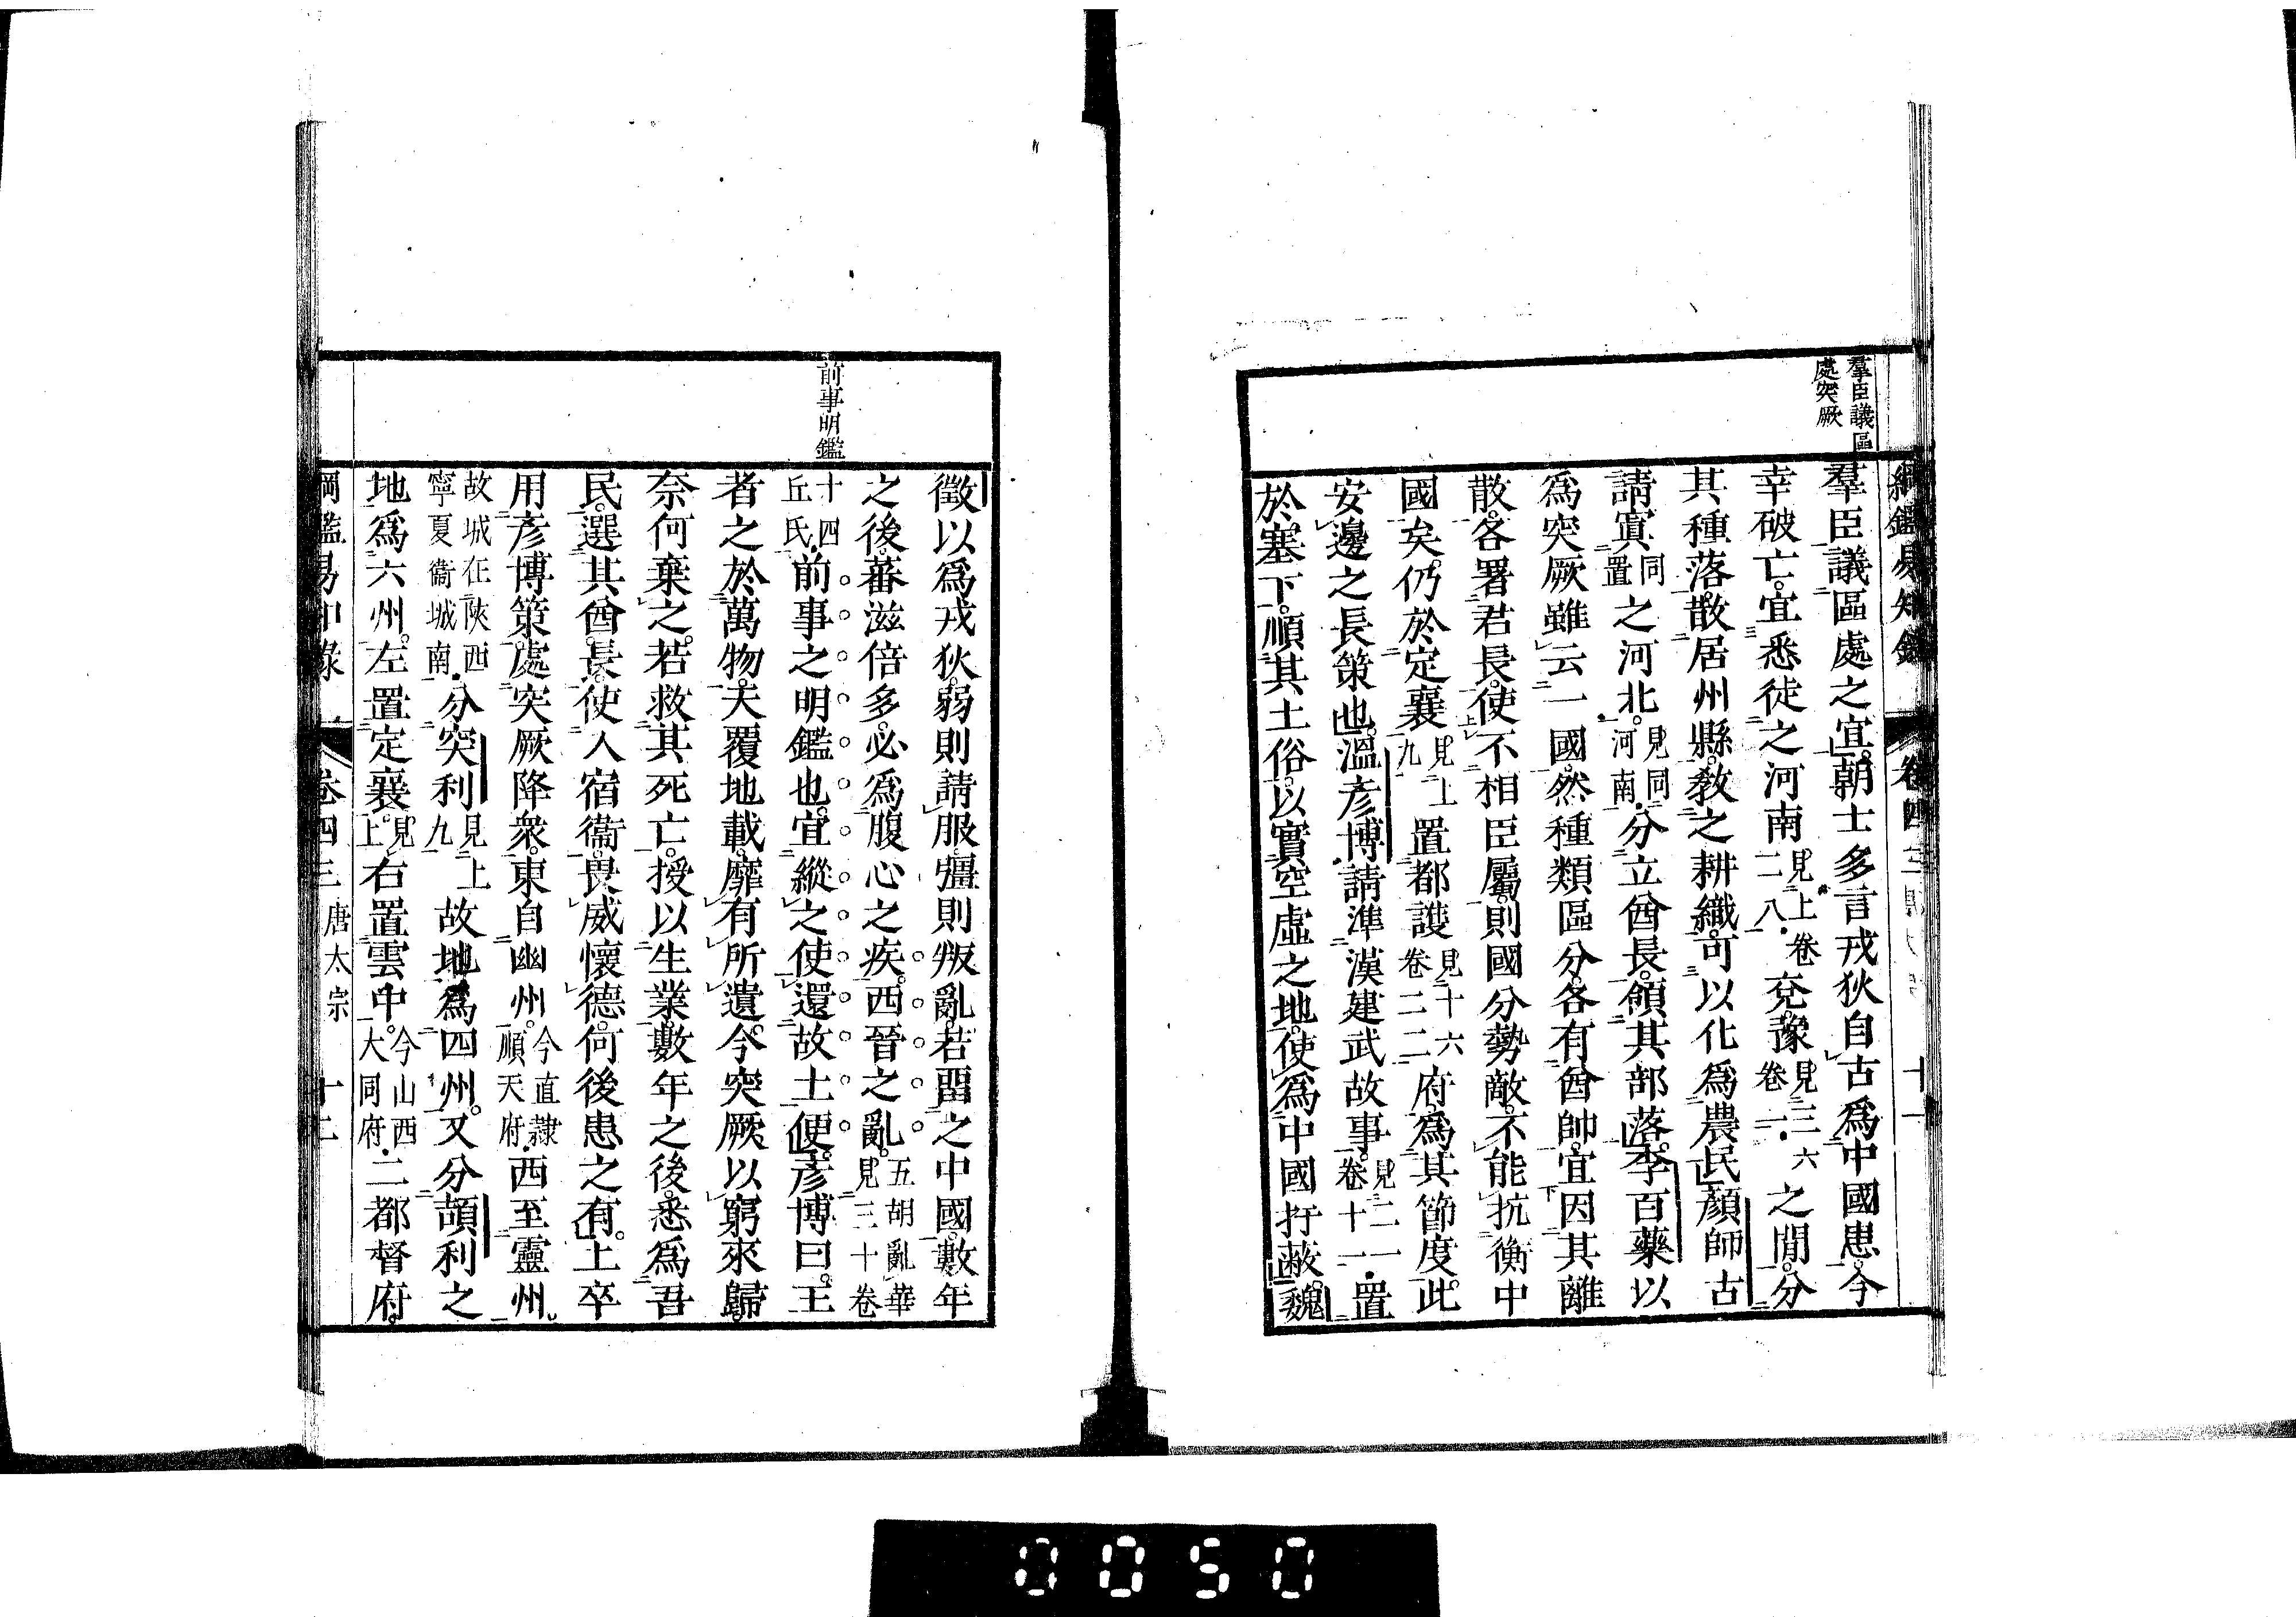 羣臣議區
處突厥
綱鑑易知錄 卷四三 十一
羣臣議區處之宜。朝士多言戎狄自古爲中國患。今
幸破亡。宜悉徙之河南見上卷二八兗豫見三六卷一之閒。分
其種落。散居州縣。敎之耕織。可以化爲農民。顏師古
請寘同置之河北。見同河南分立酋長。領其部落。李百藥以
爲突厥雖云一國。然種類區分。各有酋帥。宜因其離
散。各署君長。使不相臣屬。則國分勢敵。不能抗衡中
國矣。仍於定襄見上九置都護見十六卷二二府。爲其節度。此
安邊之長策也。溫彥博請準漢建武故事。見二一卷十一置
於塞下。順其土俗。以實空虛之地。使爲中國扞蔽。魏
前事明鑑
徵以爲戎狄。弱則請服。彊則叛亂。若畱之中國。數年
之後。蕃滋倍多。必爲腹心之疾。西晉之亂。五胡亂華見三十卷
十四丘氏前事之明鑑也。宜縱之使還故土便。彥博曰。王
者之於萬物。天覆地載。靡有所遺。今突厥以窮來歸。
奈何棄之。若救其死亡。授以生業。數年之後。悉爲吾
民。選其酋長。使入宿衞。畏威懷德。何後患之有。上卒
用彥博策。處突厥降衆。東自幽州。今直隷順天府西至靈州。
故城在陝西寧夏衞城南分突利見上九故地爲四州。又分頡利之
地爲六州。左置定襄。見上右置雲中。今山西大同府二都督府。
綱鑑易知錄 卷四三 唐太宗 十二
0050